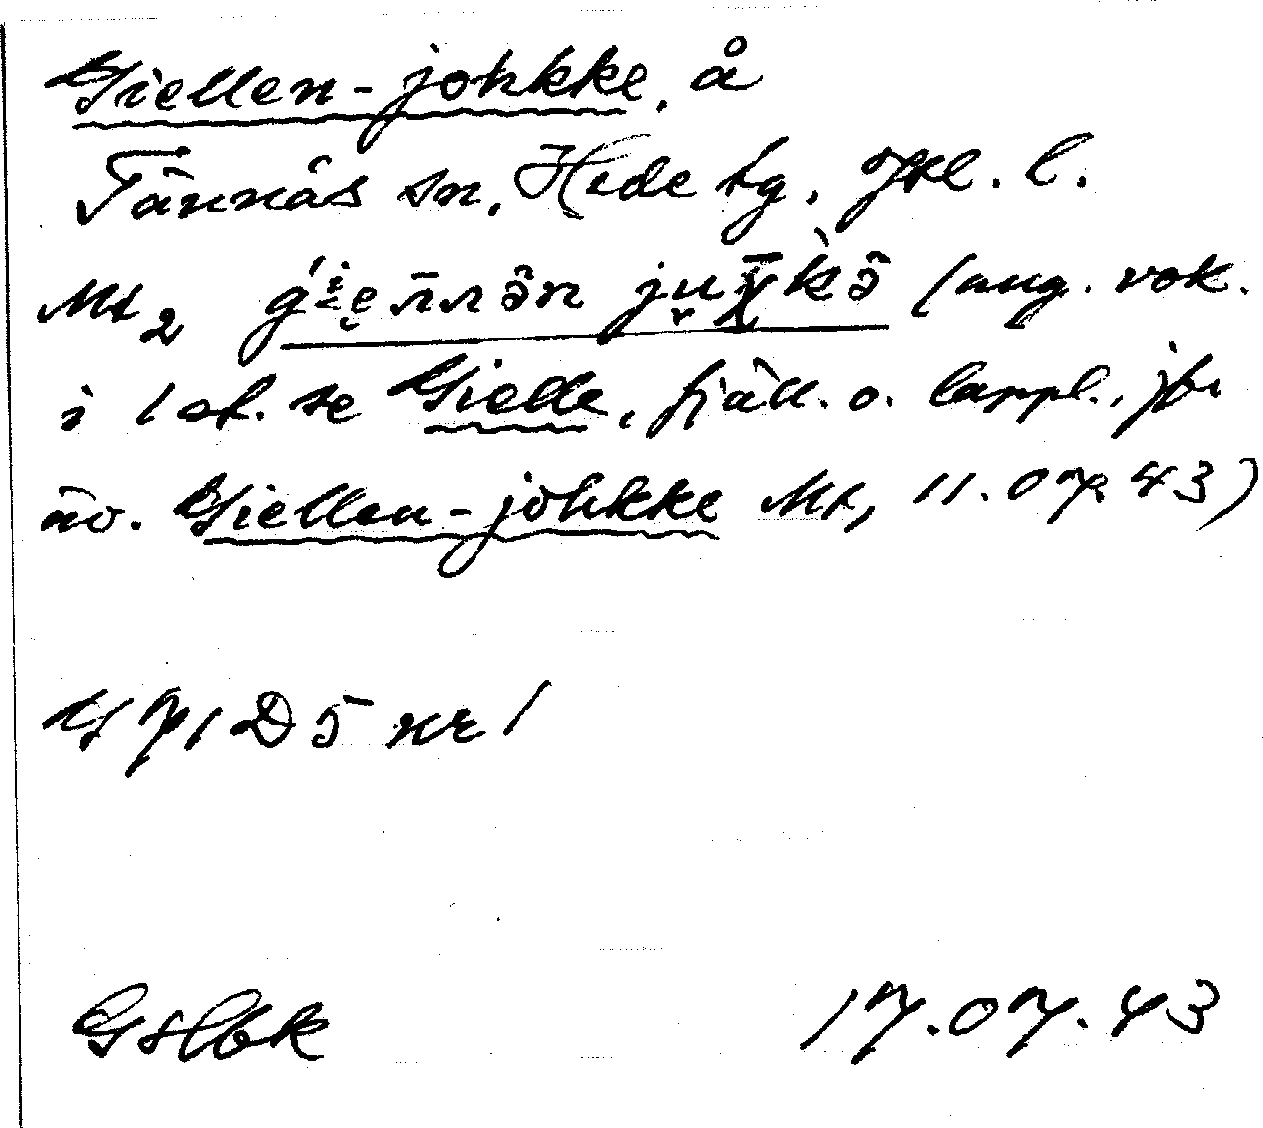 Giellen-johkke, å
Tännäs sn, Hede tg, Jtl. l.
Mt2 (ang. vok.
i 1 st. se Gielle, fjäll. o. lappl., jfr
äv. Giellen-johkke Mt, 11.07.43)
471 D 5 nr 1
Gslbk 17.07.43